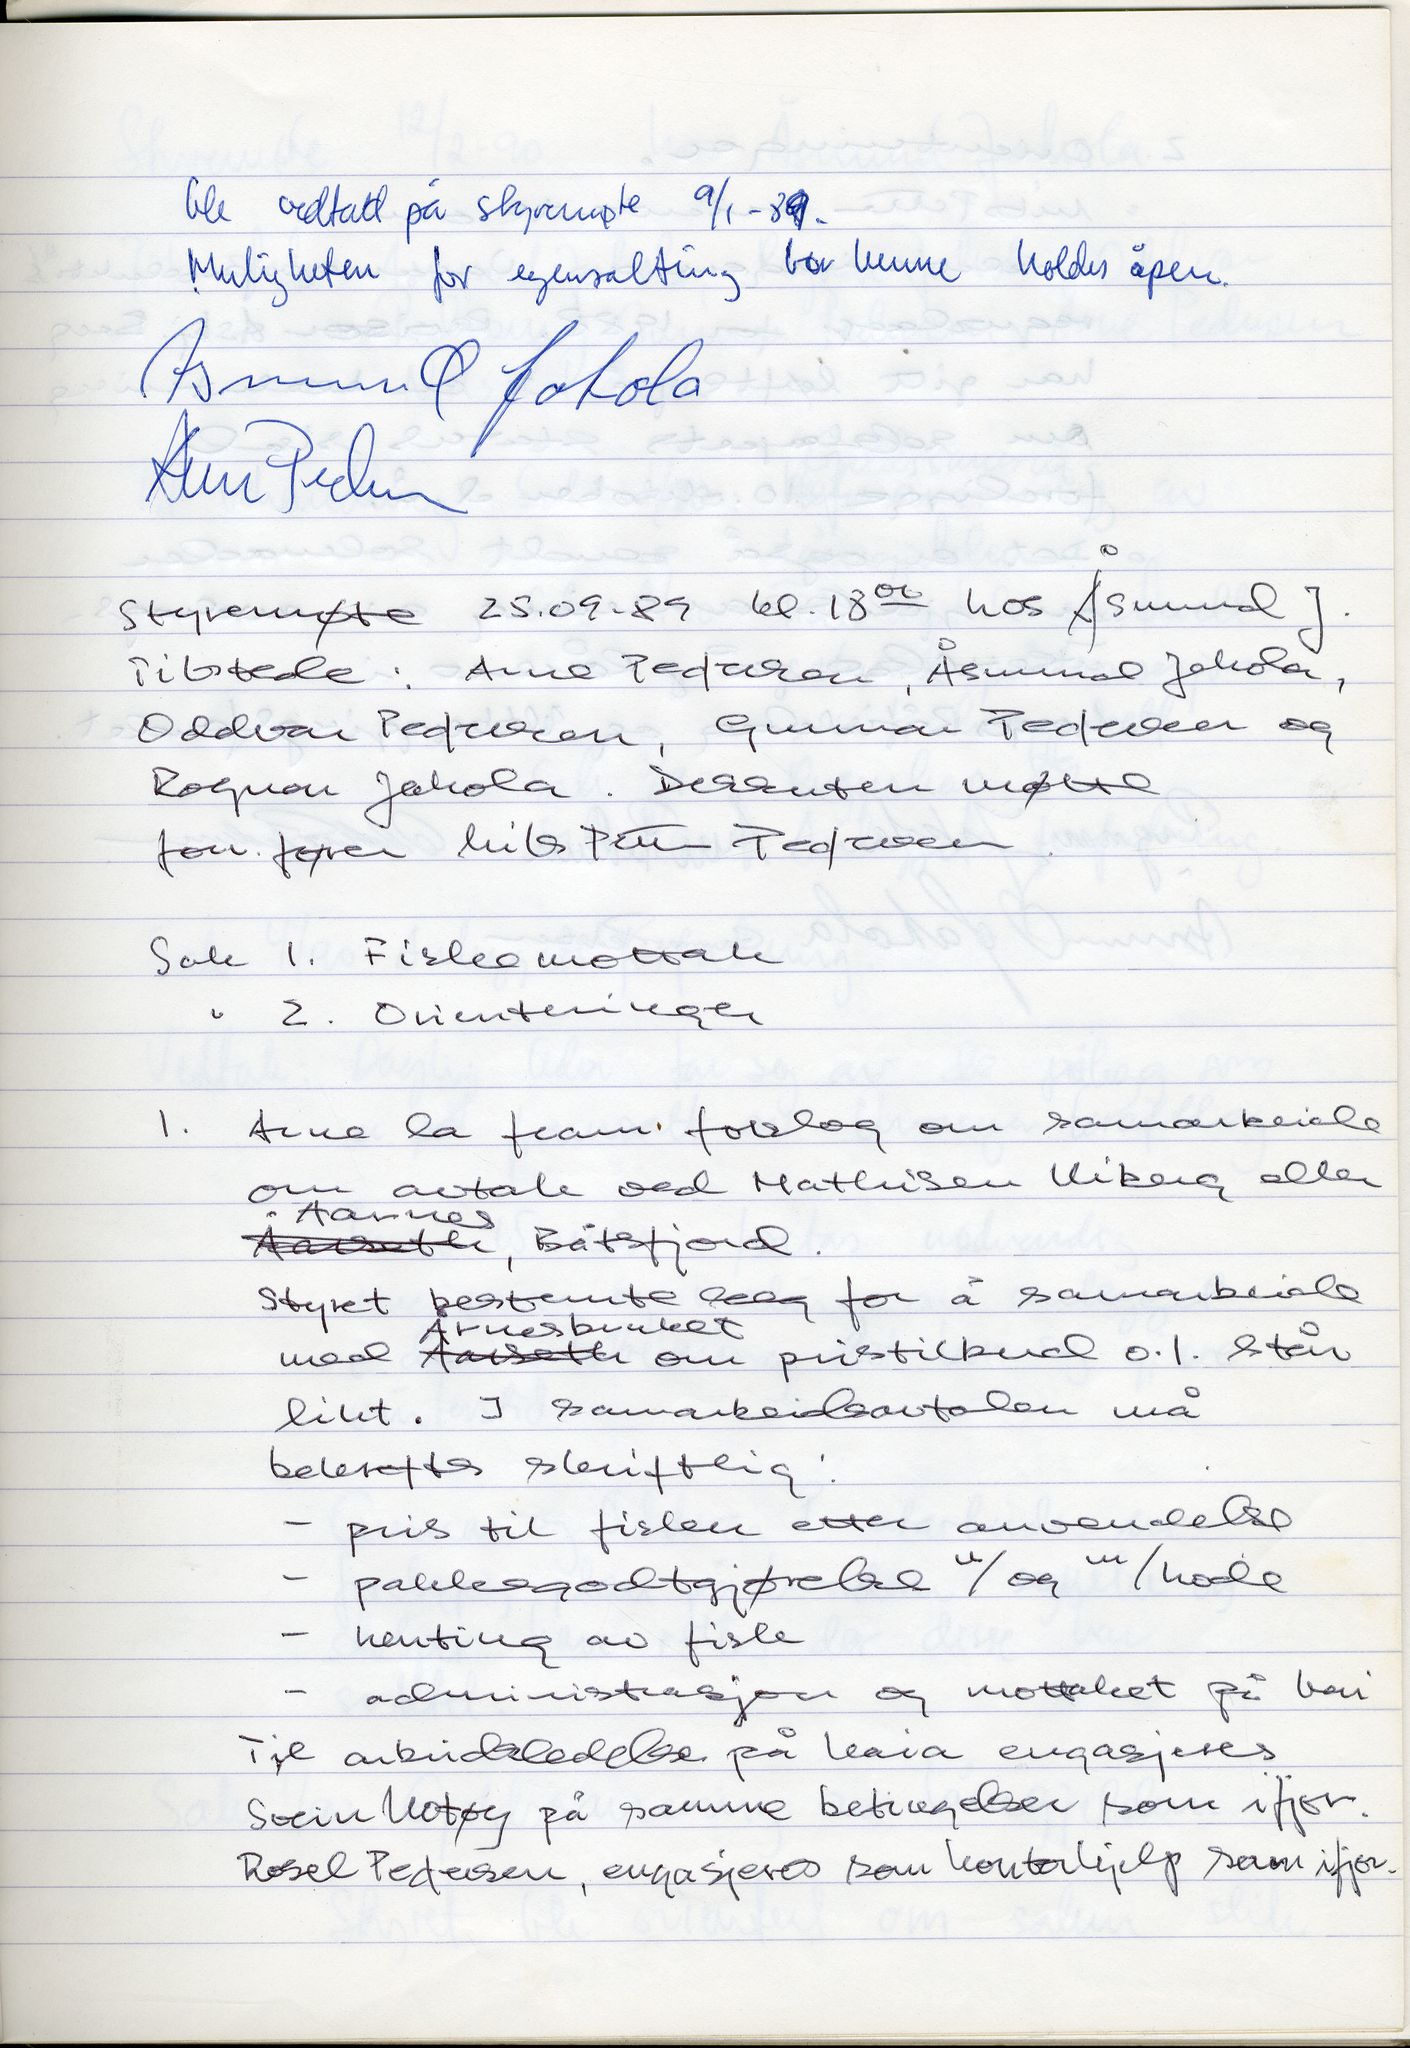 ble vedtatt på styremøte 9/1-89.
Muligheten for egensalting bør kunne holdes åpen.
Åsmund Jakola
Arne Pedersen
Styremøte 25.09-89 kl. 18 00 hos Åsmund J.
Tilstede: Arne Pedersen, Åsmund Jakola,
Oddvar Pedersen, Gunnar Pedersen og
Ragnar Jakola. Dessuten møtte
forr. fører Nils Petter Pedersen.
Sak 1. Fiskemottak
" 2. Orienteringer
1. Arne la fram forslag om samarbeide
om avtale ved Mathisen Kiberg eller
Aarnes
Aarseth, Båtsfjord.
Styret bestemte seg for å samarbeide
Årnesbruket
med Aarseth om pristilbud o.l. står
likt. I samarbeidsavtalen må
bekreftes skriftlig:
- pris til fisken etter anvendelse
- pakkegodtgjørelse u/ og m/hode
- henting av fisk
- administrasjon og mottaket på kai
Til arbeidsledelse på kaia engasjeres
Svein Kotøy på samme betingelser som ifjor.
Rosel Pedersen, engasjeres som kontorhjelp som ifjor.